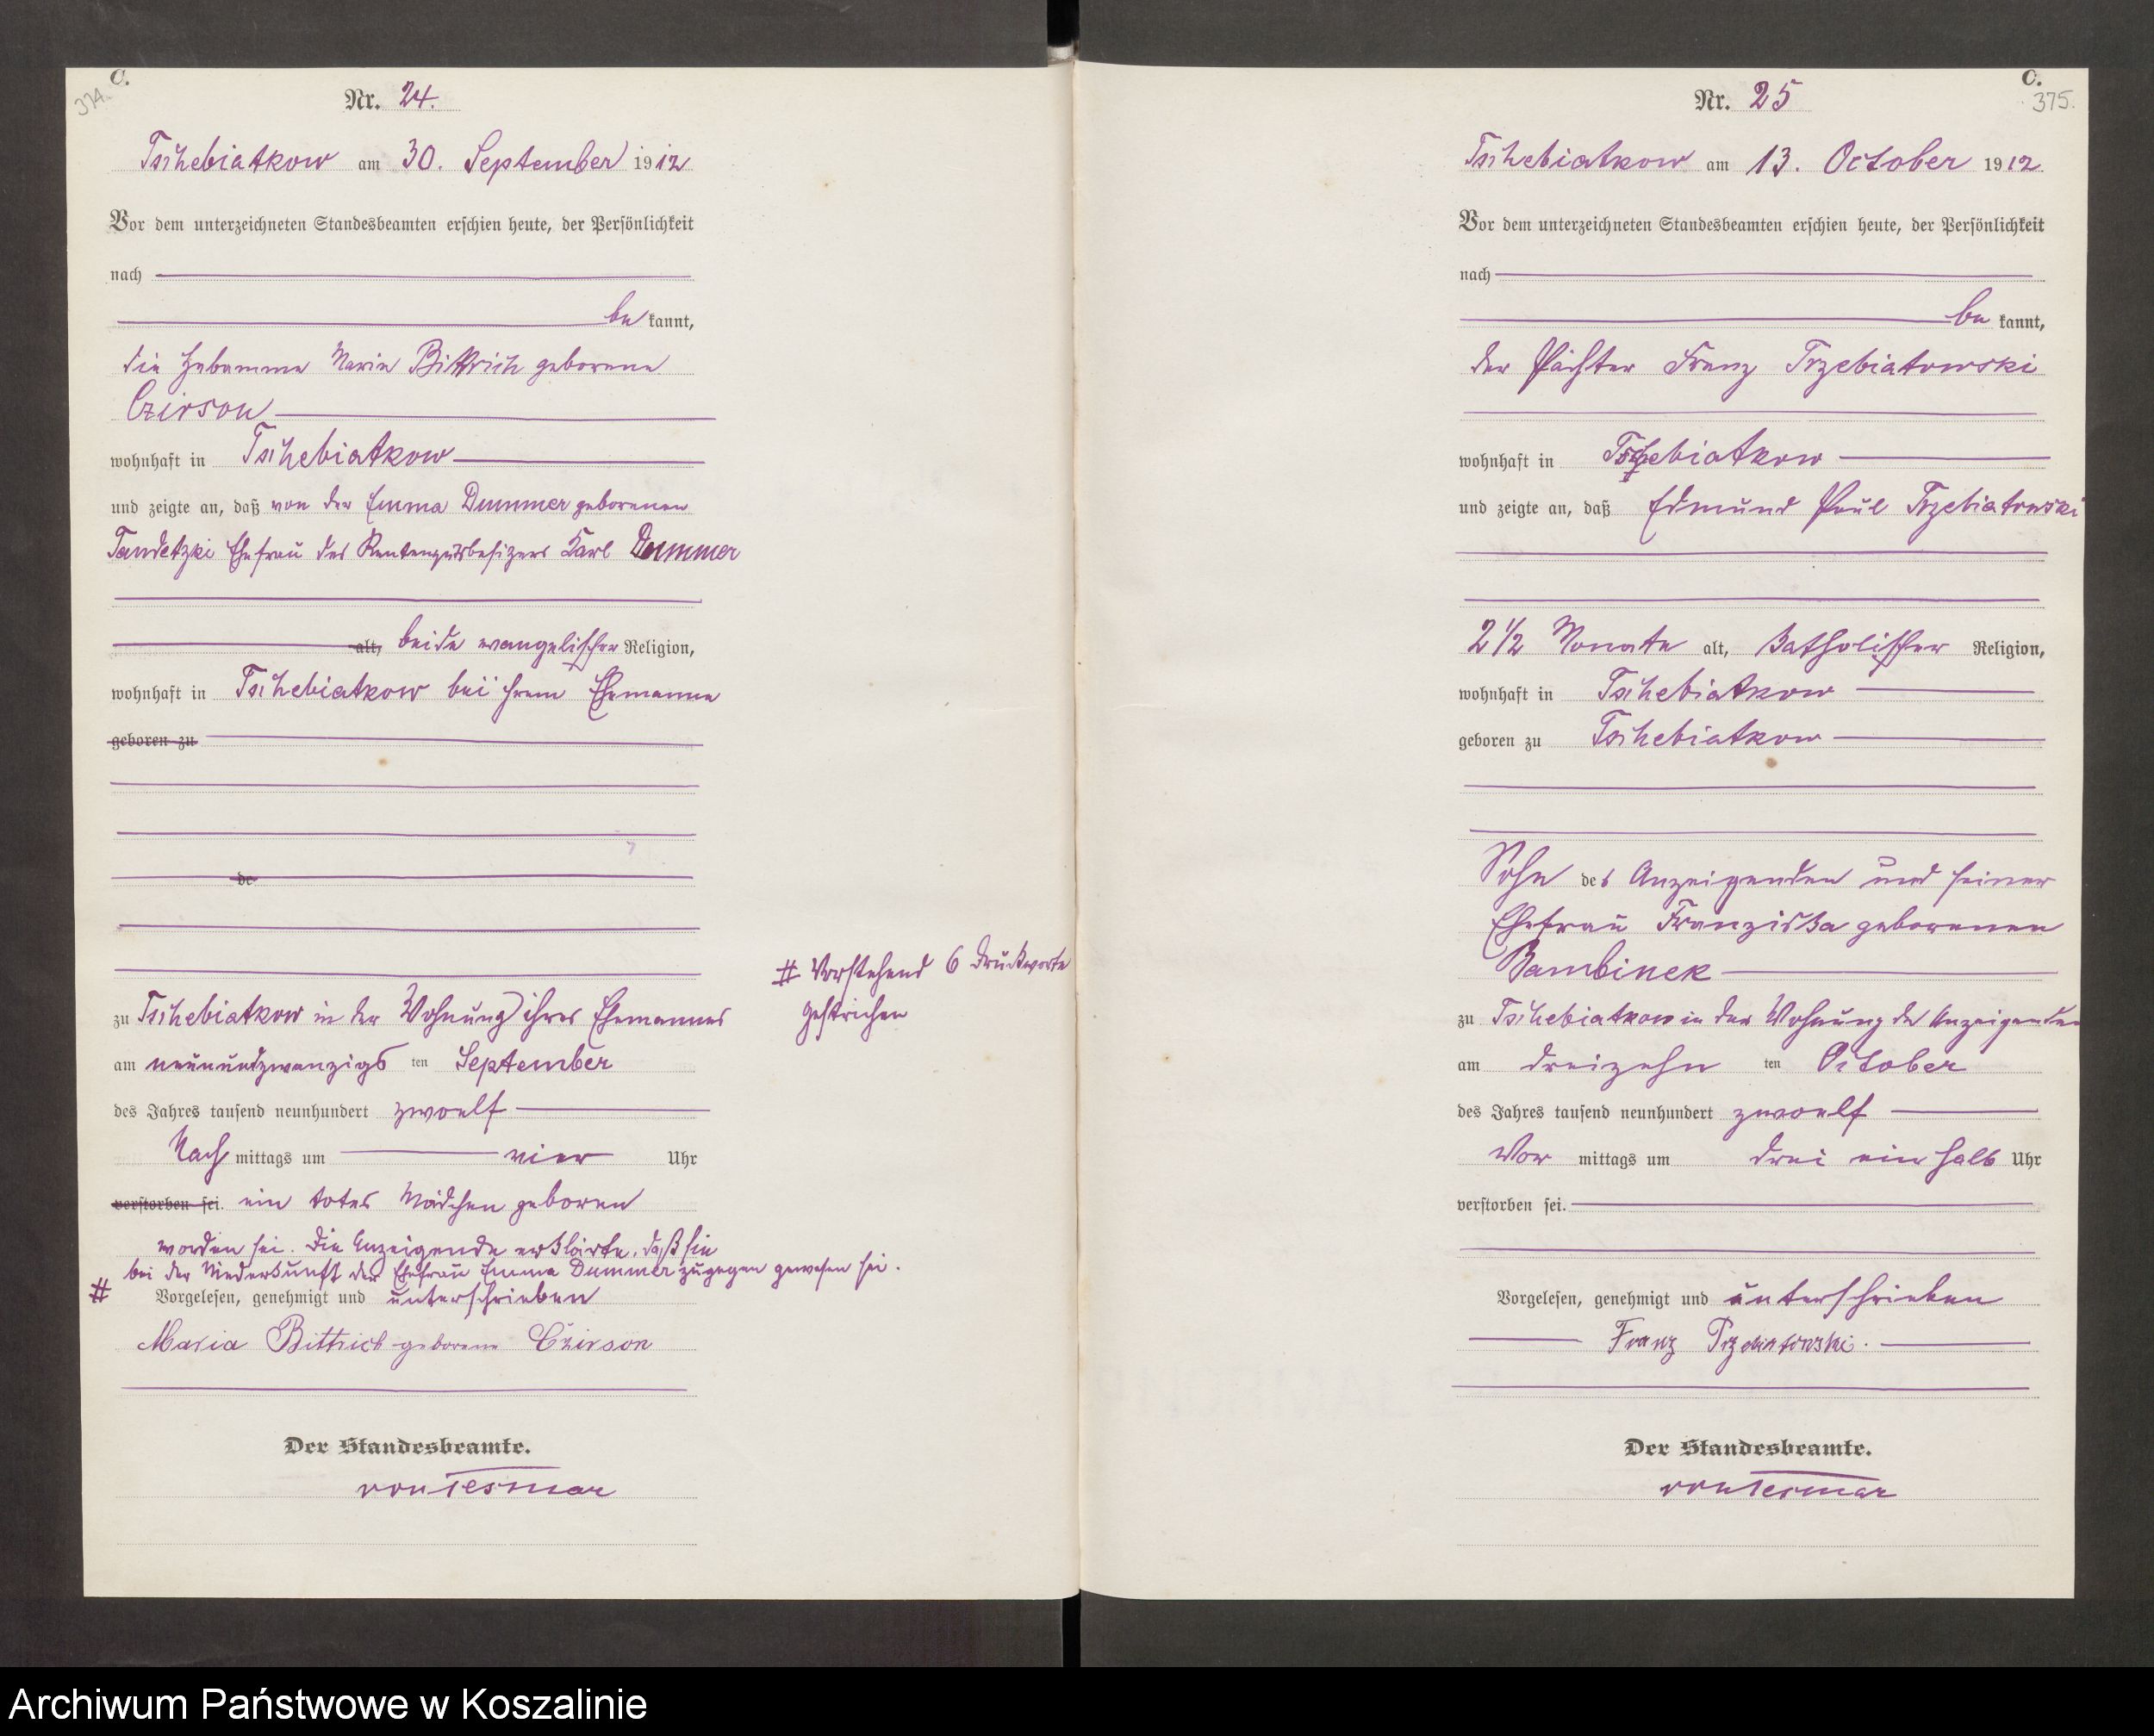 C.
374.
Nr. 24.
Tschebiatkow am 30. September 1912
Vor dem unterzeichneten Standesbeamten erschien heute, der Persönlichkeit
nach
be kannt,
die Hebamme Maria Bittrich geborene
Czirson
wohnhaft in Tschebiatkow
und zeigte an, daß von der Emma Dummer geborenen
Tandetzki Ehefrau des Rentengutsbesitzers Karl Dummer
alt, beide evangelischer Religion,
wohnhaft in Tschebiatkow bei ihrem Ehemanne
geboren zu
de
zu Tschebiatkow in der Wohnung ihres Ehemannes
am neunundzwanzigs ten September
des Jahres tausend neunhundert zwoelf
Nach mittags um vier Uhr
verstorben sei. ein totes Mädchen geboren
worden sei. Die Anzeigende erklärte, daß sie
bei der Niederkunft der Ehefrau Emma Dummer zugegen gewesen sei.
# Vorgelesen, genehmigt und unterschrieben
Maria Bittrich geborene Czirson
Der Standesbeamte.
von Tesmar
# Vorstehend 6 Druckworte
gestrichen
C.
375.
Nr. 25
Tschebiatkow am 13. October 1912
Vor dem unterzeichneten Standesbeamten erschien heute, der Persönlichkeit
nach
be kannt,
der Pächter Franz Trzebiatowski
wohnhaft in Tschebiatkow
und zeigte an, daß Edmund Paul Trzebiatowski
2 1/2 Monate alt, katholischer Religion,
wohnhaft in Tschebiatkow
geboren zu Tschebiatkow
Sohn des Anzeigenden und seiner
Ehefrau Franziska geborenen
Bambinek
zu Tschebiatkow in der Wohnung des Anzeigenden
am dreizehn ten October
des Jahres tausend neunhundert zwoelf
Vor mittags um drei ein halb Uhr
verstorben sei.
Vorgelesen, genehmigt und unterschrieben
Franz Trzebiatowski.
Der Standesbeamte.
von Tesmar
Archiwum Państwowe w Koszalinie